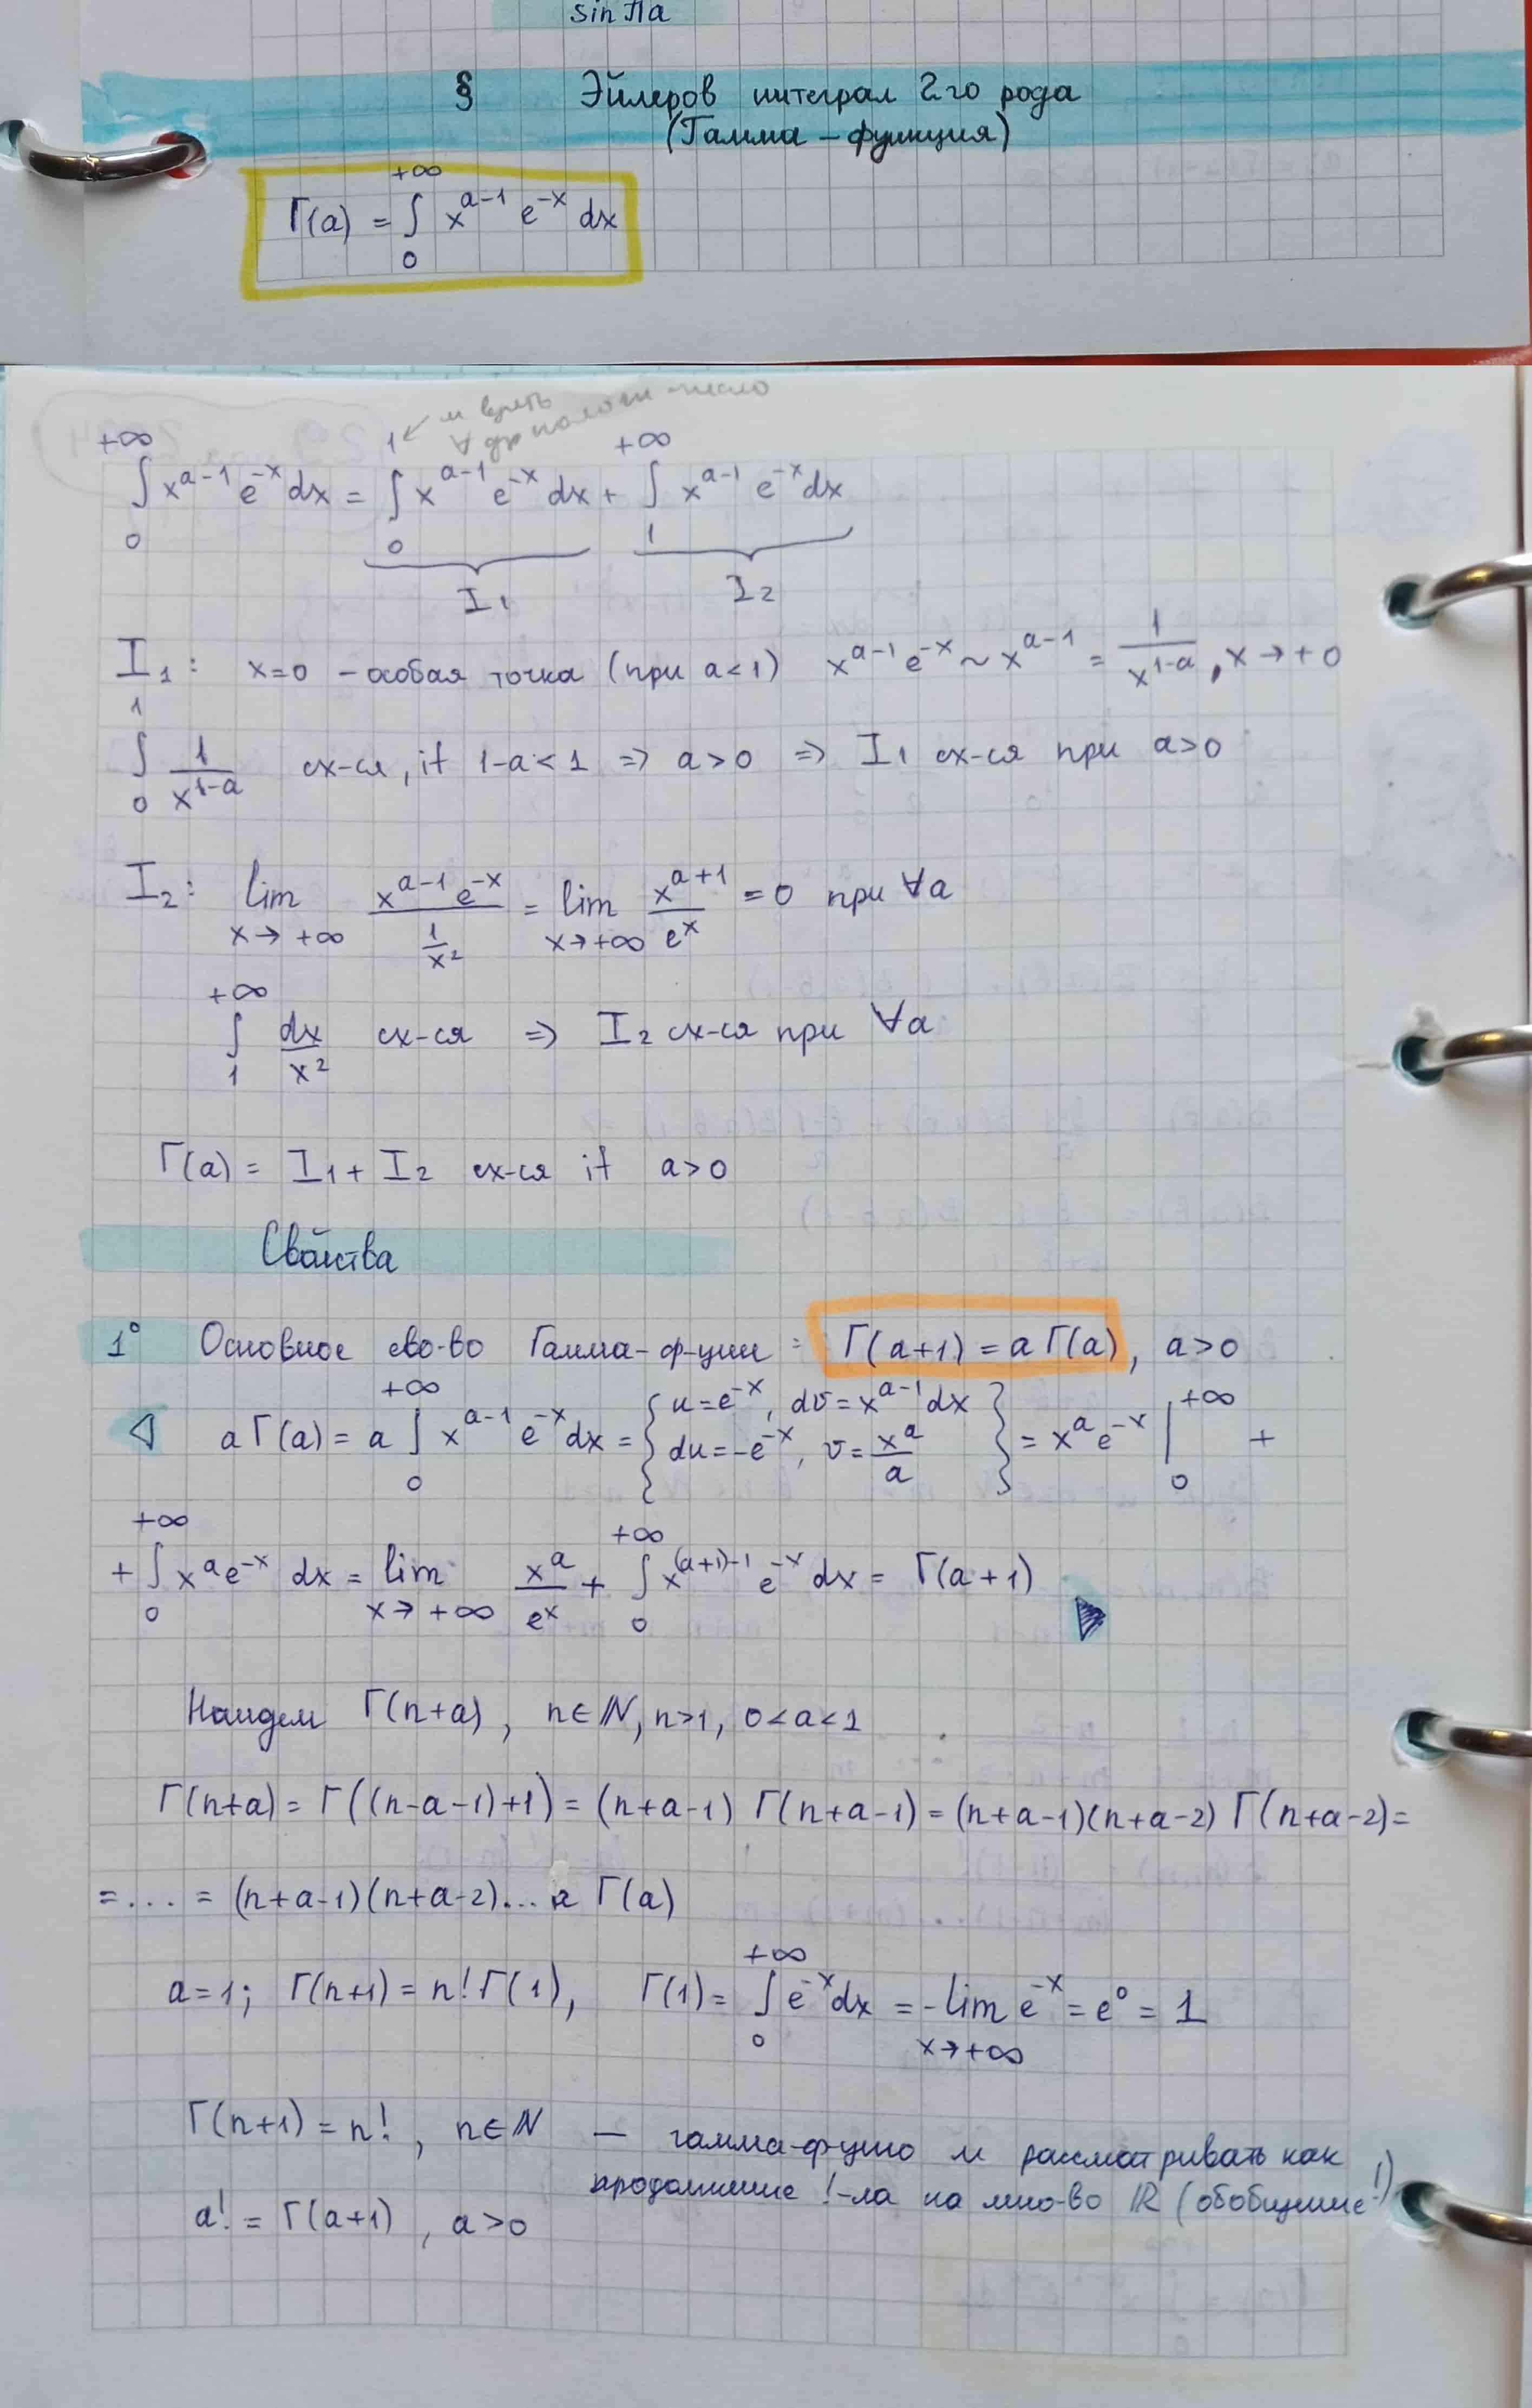 sin πa
§ Эйлеров интеграл 2го рода
(Гамма – функция)
Γ(a) = ∫₀^{+∞} x^{a-1} e^{-x} dx
м взять
∀ др полож число
∫₀^{+∞} x^{a-1} e^{-x} dx = ∫₀^{1} x^{a-1} e^{-x} dx + ∫₁^{+∞} x^{a-1} e^{-x} dx
I₁ I₂
I₁: x=0 – особая точка (при a<1) x^{a-1} e^{-x} ~ x^{a-1} = 1/x^{1-a}, x → +0
∫₀^{1} 1/x^{1-a} сх-ся, if 1-a<1 ⇒ a>0 ⇒ I₁ сх-ся при a>0
I₂: lim_{x→+∞} (x^{a-1} e^{-x})/(1/x²) = lim_{x→+∞} x^{a+1}/e^x = 0 при ∀a
∫₁^{+∞} dx/x² сх-ся ⇒ I₂ сх-ся при ∀a
Γ(a) = I₁ + I₂ сх-ся if a>0
Свойства
1° Основное св-во Гамма-ф-ции: Γ(a+1) = a Γ(a), a>0
◁ a Γ(a) = a ∫₀^{+∞} x^{a-1} e^{-x} dx = { u = e^{-x}, dv = x^{a-1} dx; du = -e^{-x}, v = x^a/a } = x^a e^{-x} |₀^{+∞} +
+ ∫₀^{+∞} x^a e^{-x} dx = lim_{x→+∞} x^a/e^x + ∫₀^{+∞} x^{(a+1)-1} e^{-x} dx = Γ(a+1) ▶
Найдем Γ(n+a), n∈ℕ, n>1, 0<a<1
Γ(n+a) = Γ((n-a-1)+1) = (n+a-1) Γ(n+a-1) = (n+a-1)(n+a-2) Γ(n+a-2) =
= ... = (n+a-1)(n+a-2)... a Γ(a)
a=1; Γ(n+1) = n! Γ(1), Γ(1) = ∫₀^{+∞} e^{-x} dx = -lim_{x→+∞} e^{-x} = e⁰ = 1
Γ(n+1) = n!, n∈ℕ — гамма-ф-цию м рассматривать как
продолжение !-ла на мно-во ℝ (обобщение!)
a! = Γ(a+1), a>0